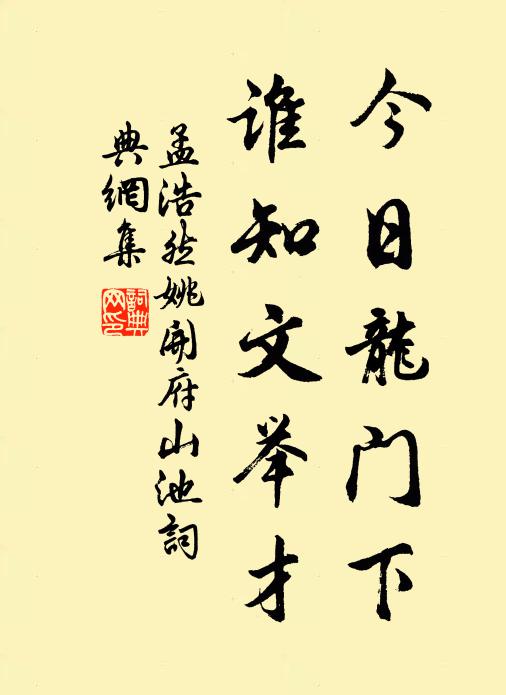 今日龍门下
谁知文举才
孟浩然姚開府山池詞
典網集
詞典
网印